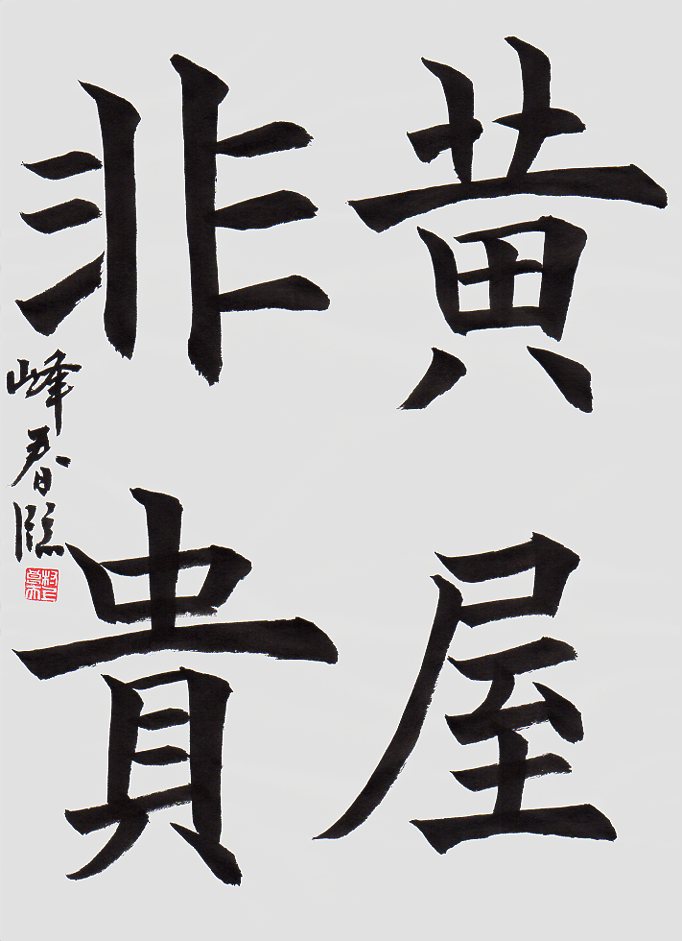 黄屋
非貴
峰春臨